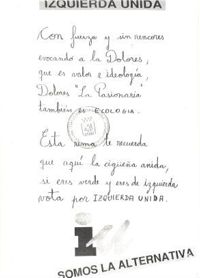 IZQUIERDA UNIDA
Con fuerza y sin rencores
evocando a la Dolores,
que es valor e ideología,
Dolores "La Pasionaria"
también es ECOLOGIA.
Esta rima te recuerda
que aquí la cigüeña anida,
si eres verde y eres de izquierda
vota por IZQUIERDA UNIDA.
SOMOS LA ALTERNATIVA